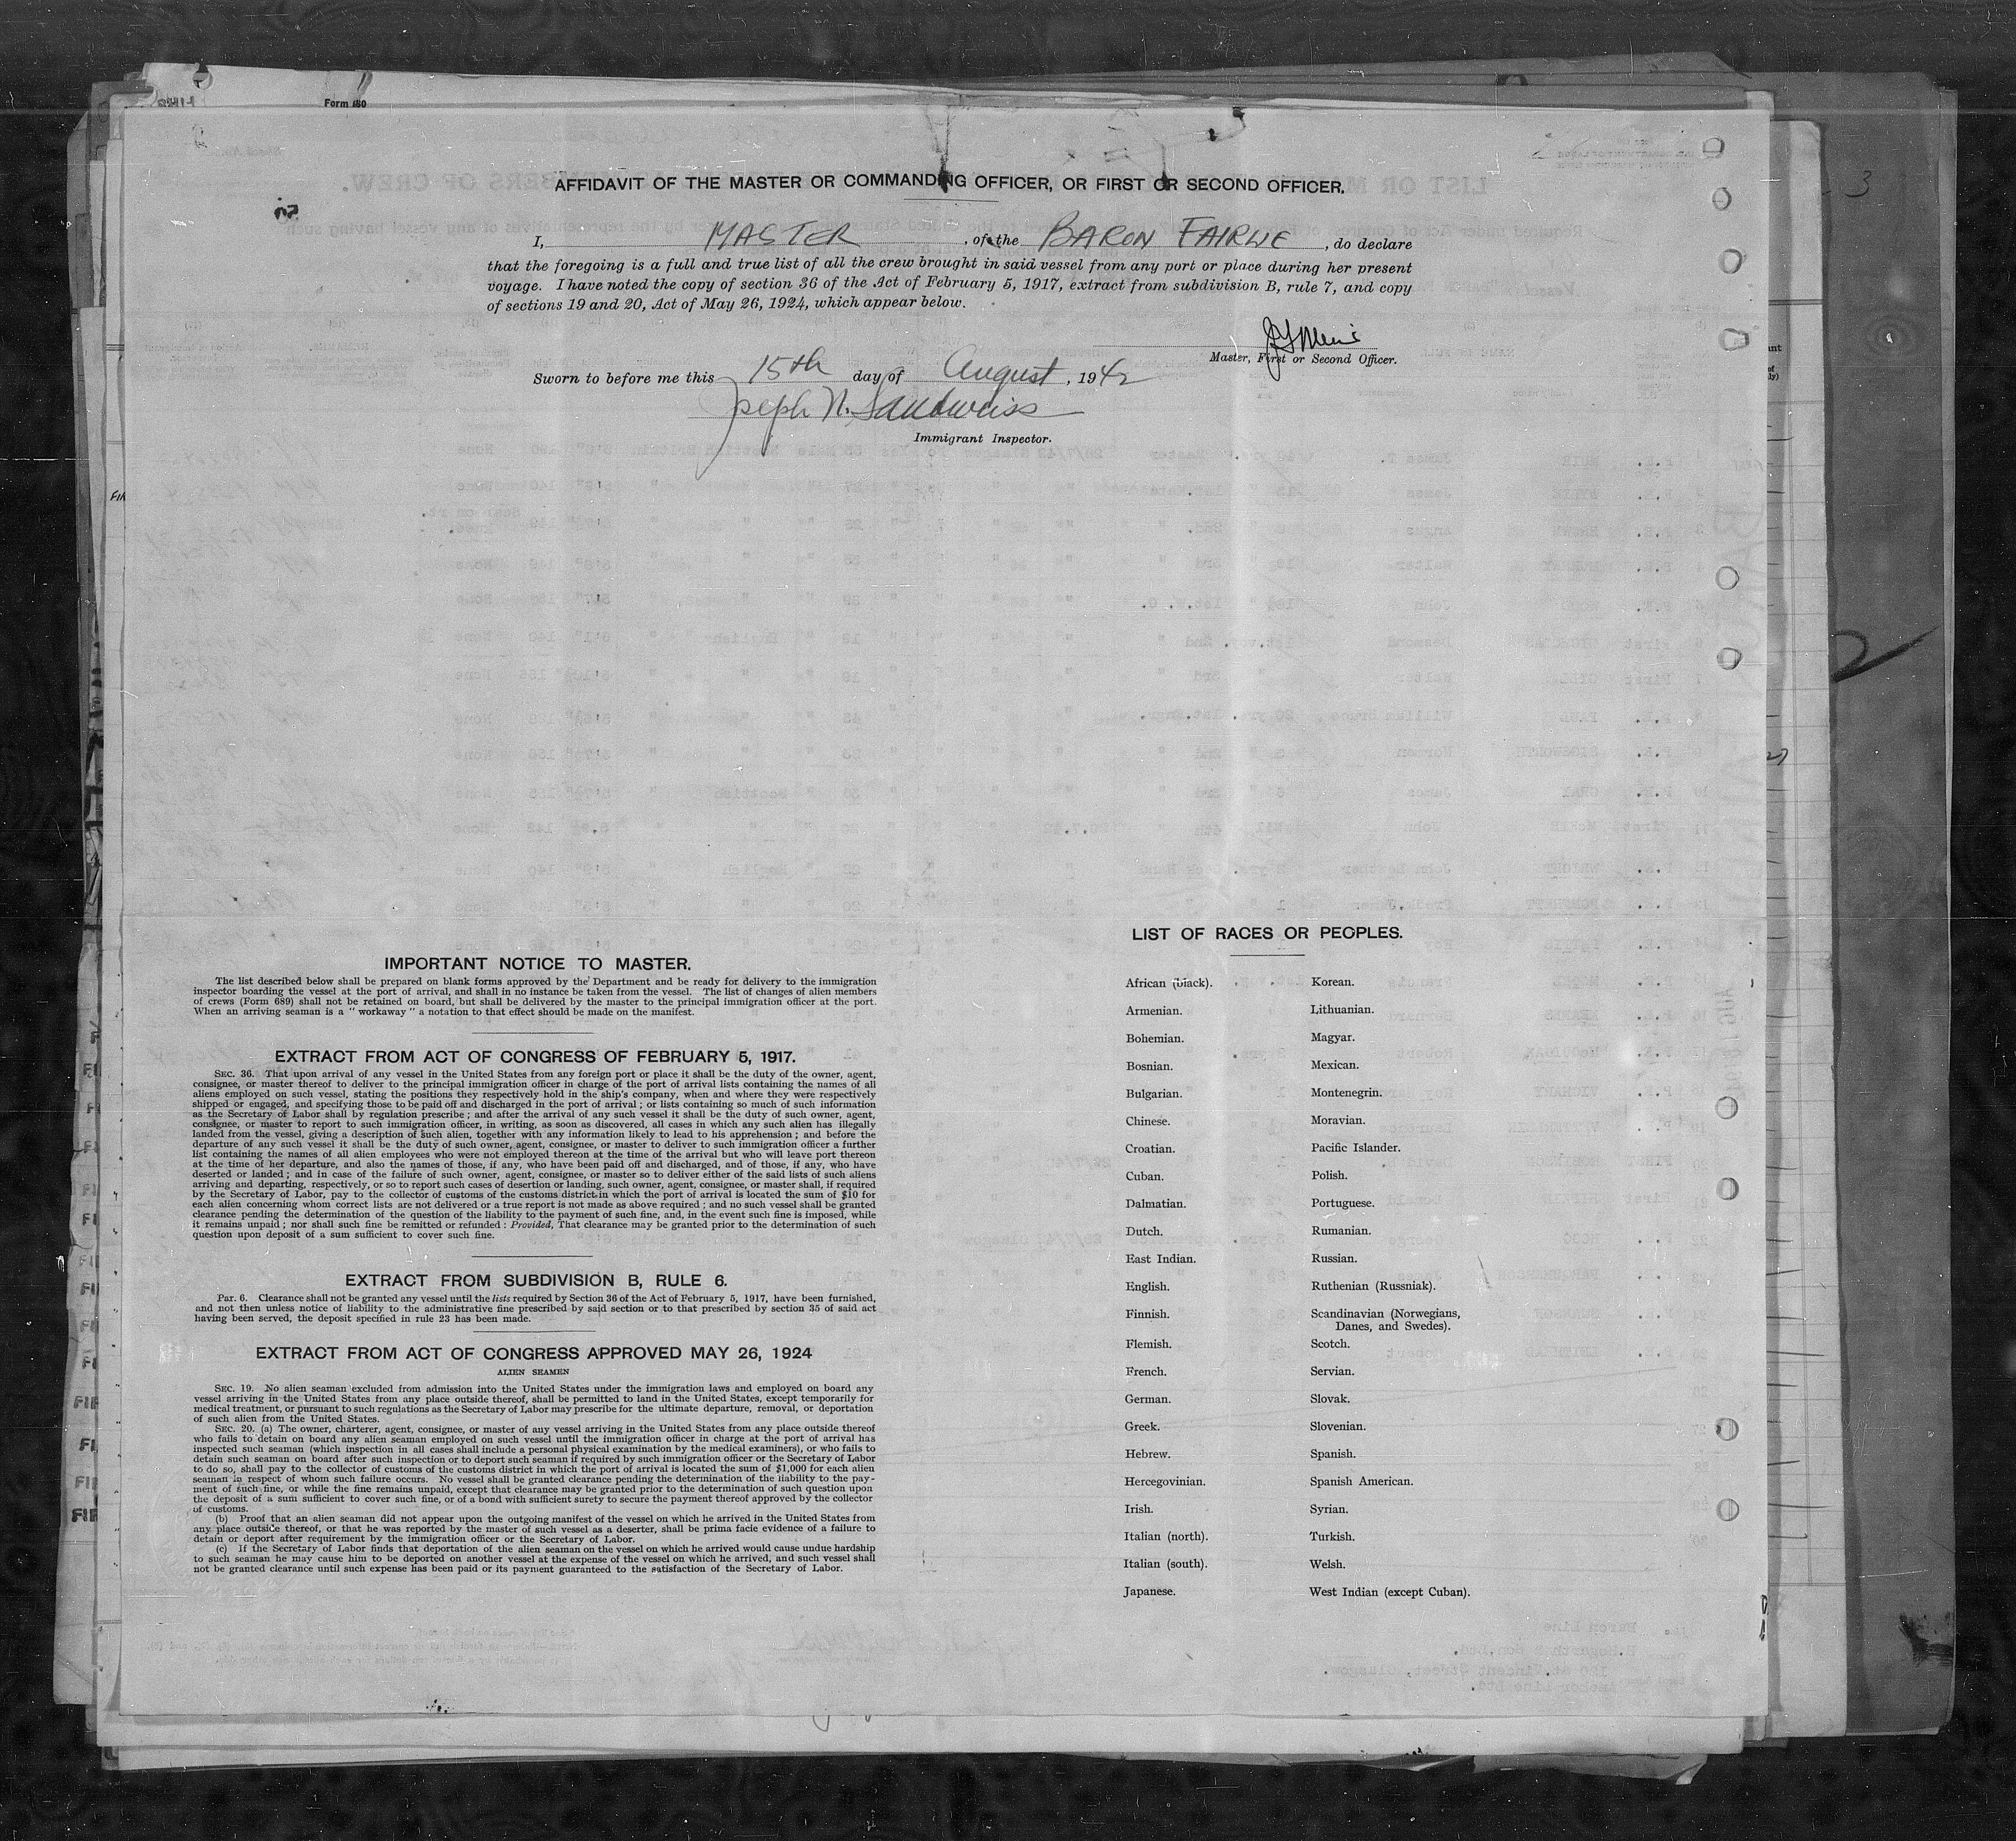 Form 680
AFFIDAVIT OF THE MASTER OR COMMANDING OFFICER, OR FIRST OR SECOND OFFICER.
I, MASTER, of the BARON FAIRLIE, do declare
that the foregoing is a full and true list of all the crew brought in said vessel from any port or place during her present
voyage. I have noted the copy of section 36 of the Act of February 5, 1917, extract from subdivision B, rule 7, and copy
of sections 19 and 20, Act of May 26, 1924, which appear below.
Master, First or Second Officer.
Sworn to before me this 15th day of August, 1942
Joseph N. Sandweiss
Immigrant Inspector.
IMPORTANT NOTICE TO MASTER.
The list described below shall be prepared on blank forms approved by the Department and be ready for delivery to the immigration
inspector boarding the vessel at the port of arrival, and shall in no instance be taken from the vessel. The list of changes of alien members
of crews (Form 689) shall not be retained on board, but shall be delivered by the master to the principal immigration officer at the port.
When an arriving seaman is a "workaway" a notation to that effect should be made on the manifest.
EXTRACT FROM ACT OF CONGRESS OF FEBRUARY 5, 1917.
SEC. 36. That upon arrival of any vessel in the United States from any foreign port or place it shall be the duty of the owner, agent,
consignee, or master thereof to deliver to the principal immigration officer in charge of the port of arrival lists containing the names of all
aliens employed on such vessel, stating the positions they respectively hold in the ship's company, when and where they were respectively
shipped or engaged, and specifying those to be paid off and discharged in the port of arrival; or lists containing so much of such information
as the Secretary of Labor shall by regulation prescribe; and after the arrival of any such vessel it shall be the duty of such owner, agent,
consignee, or master to report to such immigration officer, in writing, as soon as discovered, all cases in which any such alien has illegally
landed from the vessel, giving a description of such alien, together with any information likely to lead to his apprehension; and before the
departure of any such vessel it shall be the duty of such owner, agent, consignee, or master to deliver to such immigration officer a further
list containing the names of all alien employees who were not employed thereon at the time of the arrival but who will leave port thereon
at the time of her departure, and also the names of those, if any, who have been paid off and discharged, and of those, if any, who have
deserted or landed; and in case of the failure of such owner, agent, consignee, or master so to deliver either of the said lists of such aliens
arriving and departing, respectively, or so to report such cases of desertion or landing, such owner, agent, consignee, or master shall, if required
by the Secretary of Labor, pay to the collector of customs of the customs district in which the port of arrival is located the sum of $10 for
each alien concerning whom correct lists are not delivered or a true report is not made as above required; and no such vessel shall be granted
clearance pending the determination of the question of the liability to the payment of such fine, and, in the event such fine is imposed, while
it remains unpaid; nor shall such fine be remitted or refunded: Provided, That clearance may be granted prior to the determination of such
question upon deposit of a sum sufficient to cover such fine.
EXTRACT FROM SUBDIVISION B, RULE 6.
PAR. 6. Clearance shall not be granted any vessel until the lists required by Section 36 of the Act of February 5, 1917, have been furnished,
and not then unless notice of liability to the administrative fine prescribed by said section or to that prescribed by section 35 of said act
having been served, the deposit specified in rule 23 has been made.
EXTRACT FROM ACT OF CONGRESS APPROVED MAY 26, 1924
ALIEN SEAMEN
SEC. 19. No alien seaman excluded from admission into the United States under the immigration laws and employed on board any
vessel arriving in the United States from any place outside thereof, shall be permitted to land in the United States, except temporarily for
medical treatment, or pursuant to such regulations as the Secretary of Labor may prescribe for the ultimate departure, removal, or deportation
of such alien from the United States.
SEC. 20. (a) The owner, charterer, agent, consignee, or master of any vessel arriving in the United States from any place outside thereof
who fails to detain on board any alien seaman employed on such vessel until the immigration officer in charge at the port of arrival has
inspected such seaman (which inspection in all cases shall include a personal physical examination by the medical examiners), or who fails to
detain such seaman on board after such inspection or to deport such seaman if required by such immigration officer or the Secretary of Labor
to do so, shall pay to the collector of customs of the customs district in which the port of arrival is located the sum of $1,000 for each alien
seaman in respect of whom such failure occurs. No vessel shall be granted clearance pending the determination of the liability to the pay-
ment of such fine, or while the fine remains unpaid, except that clearance may be granted prior to the determination of such question upon
the deposit of a sum sufficient to cover such fine, or of a bond with sufficient surety to secure the payment thereof approved by the collector
of customs.
(b) Proof that an alien seaman did not appear upon the outgoing manifest of the vessel on which he arrived in the United States from
any place outside thereof, or that he was reported by the master of such vessel as a deserter, shall be prima facie evidence of a failure to
detain or deport after requirement by the immigration officer or the Secretary of Labor.
(c) If the Secretary of Labor finds that deportation of the alien seaman on the vessel on which he arrived would cause undue hardship
to such seaman he may cause him to be deported on another vessel at the expense of the vessel on which he arrived, and such vessel shall
not be granted clearance until such expense has been paid or its payment guaranteed to the satisfaction of the Secretary of Labor.
LIST OF RACES OR PEOPLES.
African (black).
Armenian.
Bohemian.
Bosnian.
Bulgarian.
Chinese.
Croatian.
Cuban.
Dalmatian.
Dutch.
East Indian.
English.
Finnish.
Flemish.
French.
German.
Greek.
Hebrew.
Hercegovinian.
Irish.
Italian (north).
Italian (south).
Japanese.
Korean.
Lithuanian.
Magyar.
Mexican.
Montenegrin.
Moravian.
Pacific Islander.
Polish.
Portuguese.
Rumanian.
Russian.
Ruthenian (Russniak).
Scandinavian (Norwegians,
Danes, and Swedes).
Scotch.
Servian.
Slovak.
Slovenian.
Spanish.
Spanish American.
Syrian.
Turkish.
Welsh.
West Indian (except Cuban).